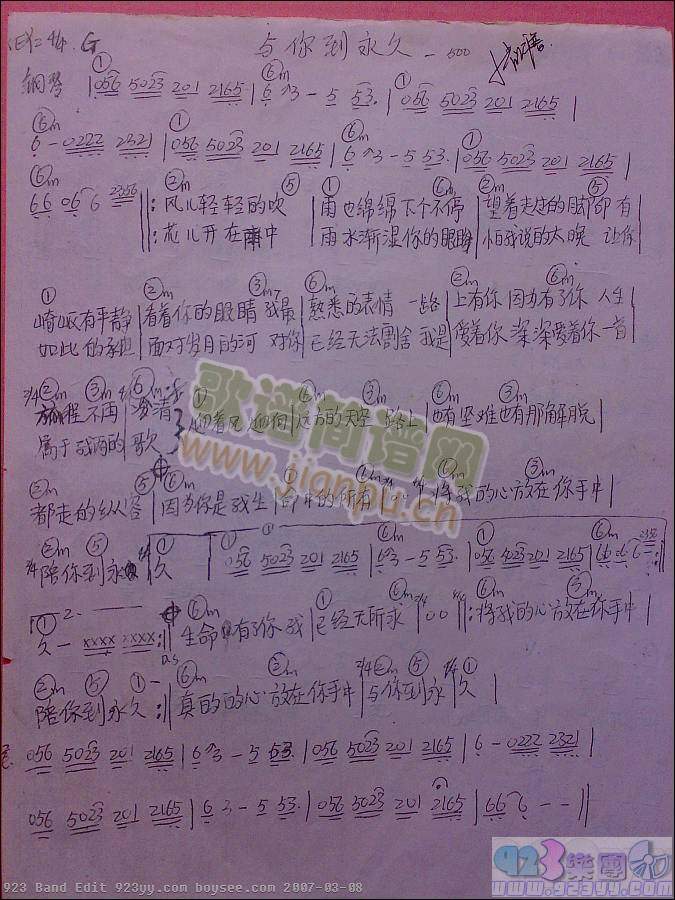 4/4 G 与你到永久
钢琴 ① |056 5023 201 2165 |⑥m 6 3 - 5 53. |① 056 5023 201 2165 |
⑥m 6 - 0222 2321 |① 056 5023 201 2165 |⑥m 6 3 - 5 53. |① 056 5023 201 2165 |
⑥m 66 06 6 2356 ‖: ②m 风儿轻轻的吹 ⑤ |① 雨也绵绵下个不停 ⑥m |②m 望着走过的脚印 ⑤ 有
花儿开在雨中 | 雨水渐湿你的眼睛 | 怕我说的太晚 让你
① 崎岖有平静 |②m 看着你的眼睛 ③m7 我最 |⑥m 熟悉的表情 一路 |②m 上有你 因为有了你 ⑥m 人生
如此的承担 | 面对岁月的河 对你 | 已经无法割舍 我是 | 爱着你 深深爱着你 一首
②m 旅程 ③m 不再 | ⑥m 澄清
属于我俩的 | 歌
远方的天空 路上 | 也有坚难也有那解脱 |
②m 都走的纵容 ⑤ |⑥m 因为你是我生 |① 命中的所有 | 00 | 将我的心放在你手中 ③m |
②m 陪你到永 ⑤ |① 久 | ① 056 5023 201 2165 |⑥m 6 3 - 5 53. |① 056 5023 201 2165 |⑥m 66 06 6 2356 :‖
2.
① 久 - xxxx xxxx :‖ D.S ⑥m 生命中有了你 我 |① 已经无所求 | 00 ‖: ⑥m 将我的心放在你手中 ③m |
②m 陪你到永久 ⑤ ① - :‖ ⑥m 真的的心放在你手中 ②m |2/4 ②m 与你到永 ⑤ |4/4 ① 久 |
056 5023 201 2165 | 6 3 - 5 53. | 056 5023 201 2165 | 6 - 0222 2321 |
056 5023 201 2165 | 6 3 - 5 53. | 056 5023 201 2165 | 66 6 - - ‖
歌谱简谱网
www.jianpu.cn
923樂團
www.923yy.com
923 Band Edit 923yy.com boysee.com 2007-03-08